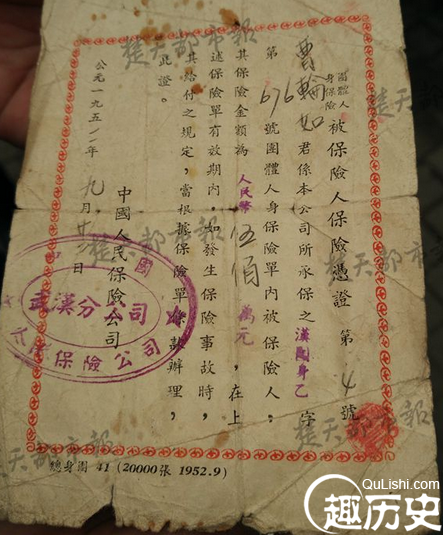 團體人
身保險 被保險人保險憑證 第 4 號
曹輪如 君係本公司所承保之 漢團身乙 字
第 676 號團體人身保險單內被保險人。
其保險金額為 人民幣 伍佰 萬元,在上
述保險單有效期內,如發生保險事故時,
其給付之規定,當根據保險單條款辦理,
此證。
中國人民保險公司
公元一九五二年 九 月 日
武漢分公司
保險公司
總身團 41 (20000張 1952.9)
楚天都市報
楚天都市報
楚天都市報
楚天都市報
QuLishi.com
趣历史